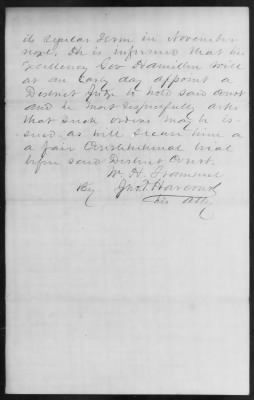 its regular term in November
next. He is informed that his
Excellency Gov Hamilton will
at an Early day appoint a
District Judge to hold said court
and he most respectfully asks
that such orders may be is-
sued as will secure him a
a fair Constitutional trial
before said District Court.
W. H.
By Jno T. Harcourt
his Atty